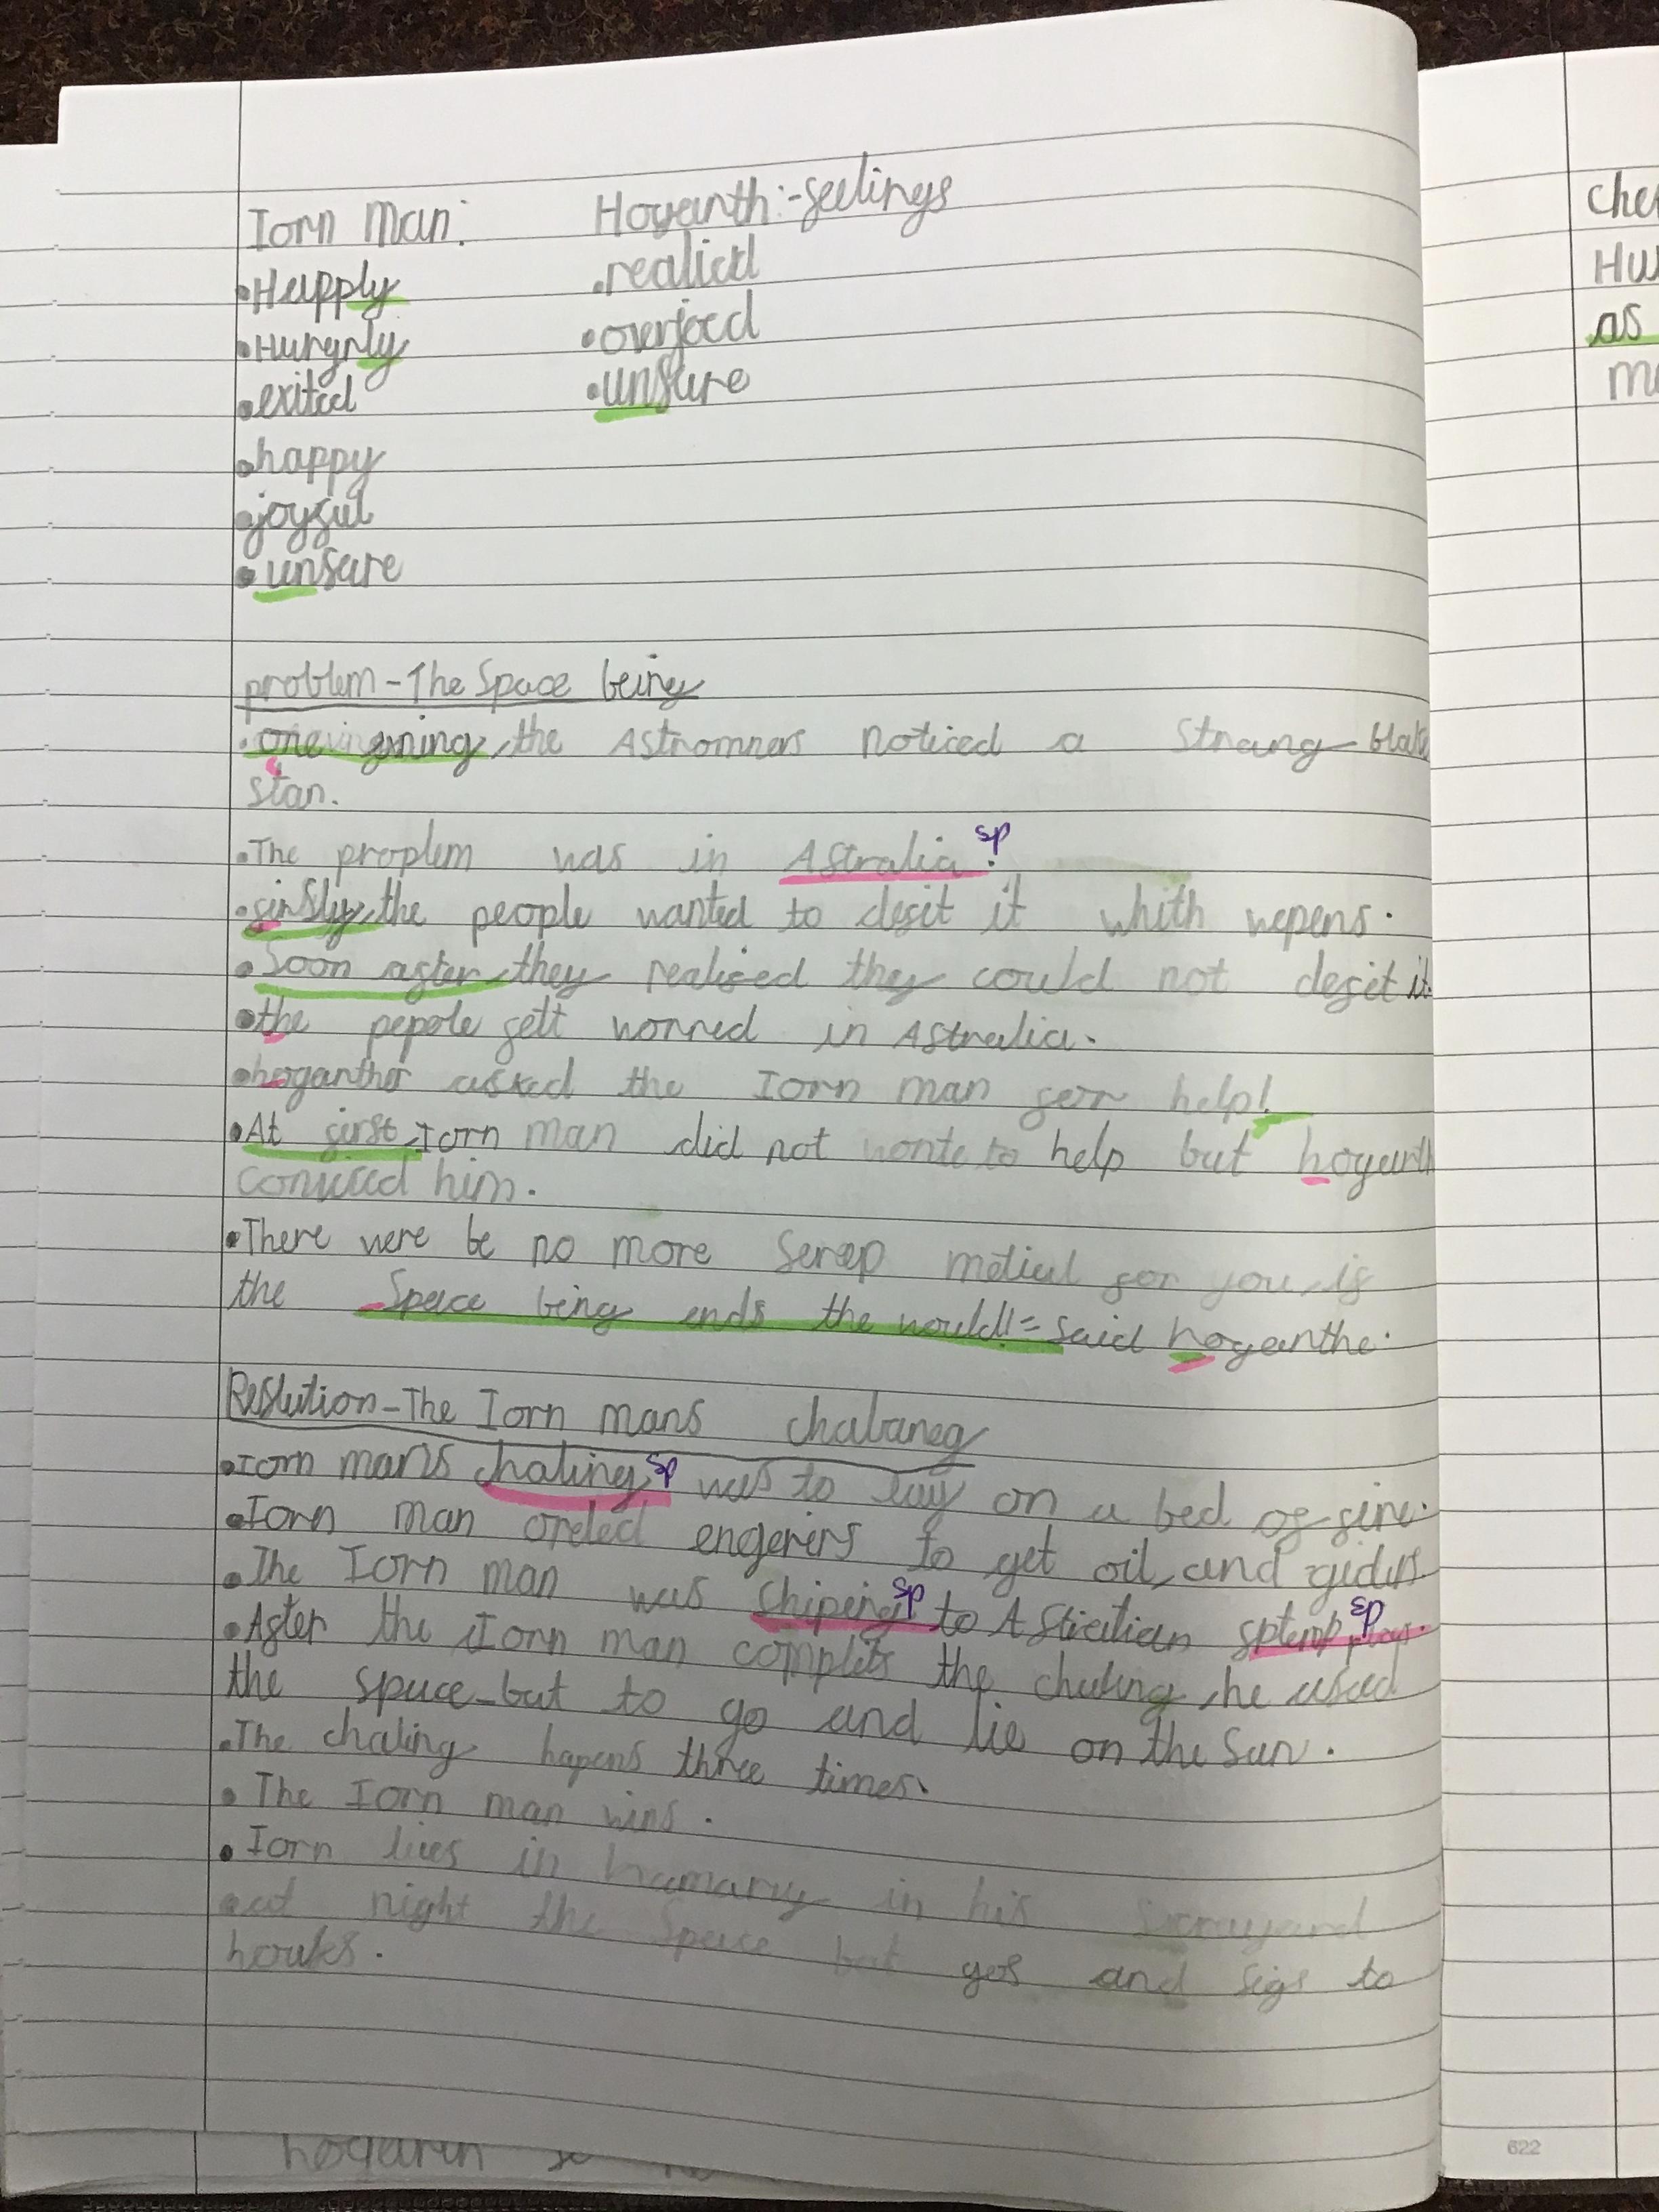 Iorn Man: Hoganth:-feelings
•Happly •realicd
•Hungrly •overjoed
•exited •unsure
•happy
•joyful
•unsure
problem-The Space being
the Astromners noticed a Strang
Stan.
•The proplem was in Astralia. sp
•finsly, the people wanted to defit it whith wepens.
•Soon after, they realised they could not defit it.
•the pepole felt worred in Astralia.
•hoganther asked the Iorn man for help!
•At first, Iorn man did not wonte to help but hogarth
him.
•There were be no more Scrap metial for you, if
the Space being ends the would!" said hoganthe.
Reslution-The Iorn mans chalaneg
•Iorn man's chaling sp was to lay on a bed of fire.
•Iorn man orded engerers to get oil, and
•The Iorn man was Shipeng sp to sp
•After the Iorn man complets the chaling, he used
the space-bat to go and lie on the Sun.
•The chaling hapens three times.
•The Iorn man wins.
•Iorn lives in in his
•at night the Space bat and sigs to
houks.
hogarth so
che
Hu
as
m
622